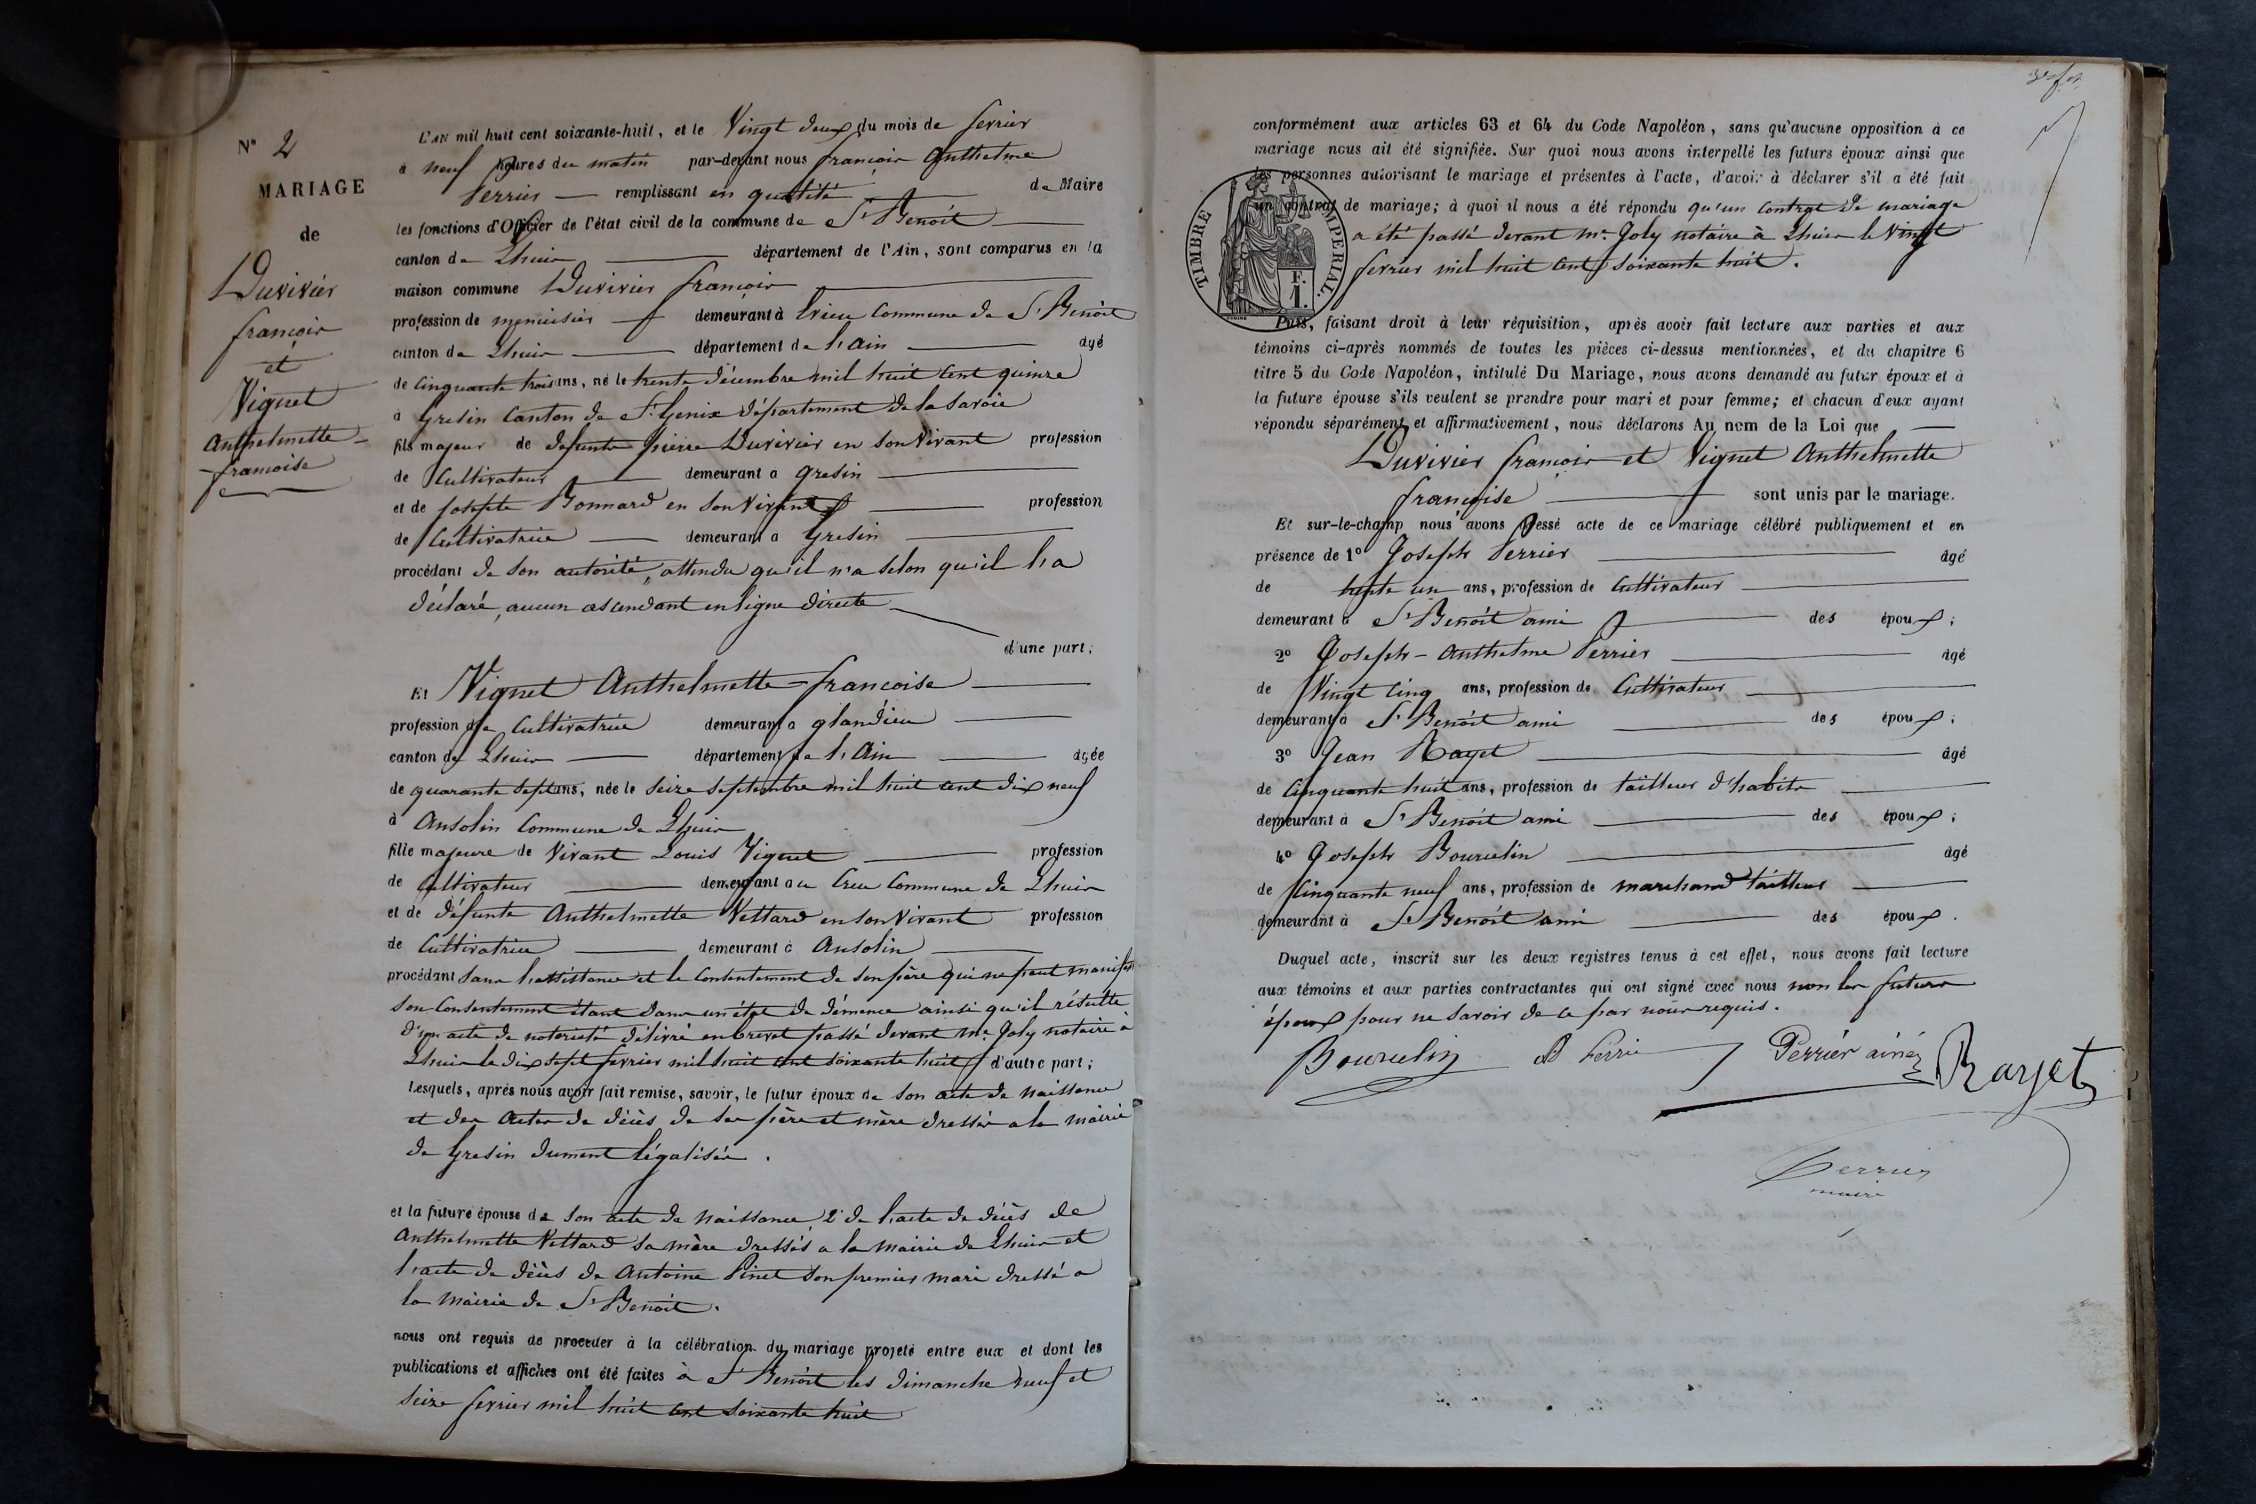 N° 2
MARIAGE
de
Duvivier
françois
et
Viguet
anthelmette-
françoise
L'AN mil huit cent soixante-huit, et le Vingt deux du mois de fevrier
à neuf heures du matin par-devant nous françois Anthelme
Perrier remplissant en qualité de Maire
les fonctions d'Officier de l'état civil de la commune de St Benoit
canton de Lhuis département de l'Ain, sont comparus en la
maison commune Duvivier françois
profession de menuisier demeurant à Evieu Commune de St Benoit
canton de Lhuis département de l'ain âgé
de cinquante trois ans, né le trente décembre mil huit cent quinze
à Gresin Canton de St Genix département de la Savoie
fils majeur de defunts pierre Duvivier en son Vivant profession
de Cultivateur demeurant à gresin
et de Josephte Bonnard en son Vivant profession
de Cultivatrice demeurant à Gresin
procédant de son autorité, attendu qu'il n'a selon qu'il l'a
déclaré, aucun ascendant en ligne directe
d'une part;
Et Viguet Anthelmette-françoise
profession de Cultivatrice demeurant à glandieu
canton de Lhuis département de l'Ain âgée
de quarante sept ans, née le seize septembre mil huit cent dix neuf
à Ansolin Commune de Lhuis
fille majeure de Vivant Louis Viguet profession
de Cultivateur demeurant au Creu Commune de Lhuis
et de défunte Anthelmette Vettard en son Vivant profession
de Cultivatrice demeurant à Ansolin
procédant sans l'assistance et le Consentement de son père qui ne peut manifes
son Consentement étant dans un état de démence ainsi qu'il résulte
d'un acte de notoriété délivré en brevet passé devant Me Joly notaire à
Lhuis le dix sept fevrier mil huit cent soixante huit d'autre part;
Lesquels, après nous avoir fait remise, savoir, le futur époux de son acte de naissance
et des actes de décès de ses père et mère dressés à la mairie
de Gresin dument légalisés.
et la future épouse de son acte de naissance, 2° de l'acte de décès de
Anthelmette Vettard sa mère dressés à la Mairie de Lhuis et
l'acte de décès de Antoine Pinet son premier mari dressé à
la Mairie de St Benoit.
nous ont requis de procéder à la célébration du mariage projeté entre eux et dont les
publications et affiches ont été faites à St Benoit les dimanche neuf et
seize fevrier mil huit cent soixante huit
conformément aux articles 63 et 64 du Code Napoléon, sans qu'aucune opposition à ce
mariage nous ait été signifiée. Sur quoi nous avons interpellé les futurs époux ainsi que
les personnes autorisant le mariage et présentes à l'acte, d'avoir à déclarer s'il a été fait
un contrat de mariage; à quoi il nous a été répondu qu'un Contrat de mariage
a été passé devant Me Joly notaire à Lhuis le Vingt
fevrier mil huit cent soixante huit.
TIMBRE IMPERIAL.
F.
1.
Puis, faisant droit à leur réquisition, après avoir fait lecture aux parties et aux
témoins ci-après nommés de toutes les pièces ci-dessus mentionnées, et du chapitre 6
titre 5 du Code Napoléon, intitulé Du Mariage, nous avons demandé au futur époux et à
la future épouse s'ils veulent se prendre pour mari et pour femme; et chacun d'eux ayant
répondu séparément et affirmativement, nous déclarons Au nom de la Loi que
Duvivier françois et Viguet Anthelmette
françoise sont unis par le mariage.
Et sur-le-champ nous avons dressé acte de ce mariage célébré publiquement et en
présence de 1° Joseph Perrier âgé
de trente un ans, profession de Cultivateur
demeurant à St Benoit ami des époux;
2° Joseph-Anthelme Perrier âgé
de Vingt cinq ans, profession de Cultivateur
demeurant à St Benoit ami des époux;
3° Jean Rayet âgé
de Cinquante huit ans, profession de tailleur d'habits
demeurant à St Benoit ami des époux;
4° Joseph Bourcelin âgé
de Cinquante neuf ans, profession de marchand tailleur
demeurant à St Benoit ami des époux.
Duquel acte, inscrit sur les deux registres tenus à cet effet, nous avons fait lecture
aux témoins et aux parties contractantes qui ont signé avec nous non les futurs
époux pour ne savoir de ce par nous requis.
Bourcelin Perrier Perrier ainé Rayet
Perrier
maire